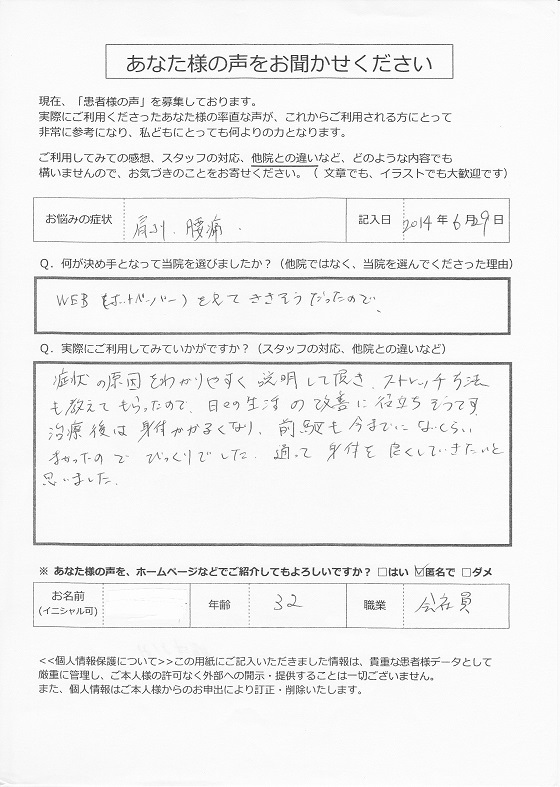 あなた様の声をお聞かせください
現在、「患者様の声」を募集しております。
実際にご利用くださったあなた様の率直な声が、これからご利用される方にとって
非常に参考になり、私どもにとっても何よりの力となります。
ご利用してみての感想、スタッフの対応、他院との違いなど、どのような内容でも
構いませんので、お気づきのことをお寄せください。（ 文章でも、イラストでも大歓迎です）
お悩みの症状 肩こり、腰痛、 記入日 2014 年 6 月 29 日
Q．何が決め手となって当院を選びましたか？（他院ではなく、当院を選んでくださった理由）
WEB（ホットペーパー）を見て ききそうだったので、
Q．実際にご利用してみていかがですか？（スタッフの対応、他院との違いなど）
症状の原因をわかりやすく説明して頂き、ストレッチ方法
も教えてもらったので、日々の生活の改善に役立ちそうです
治療後は身体がかるくなり、前駆も今までにないくらい
まがったのでびっくりでした。通って身体を良くしていきたいと
思いました。
※ あなた様の声を、ホームページなどでご紹介してもよろしいですか？ □はい ☑匿名で □ダメ
お名前
(イニシャル可) 年齢 32 職業 会社員
<<個人情報保護について>>この用紙にご記入いただきました情報は、貴重な患者様データとして
厳重に管理し、ご本人様の許可なく外部への開示・提供することは一切ございません。
また、個人情報はご本人様からのお申出により訂正・削除いたします。